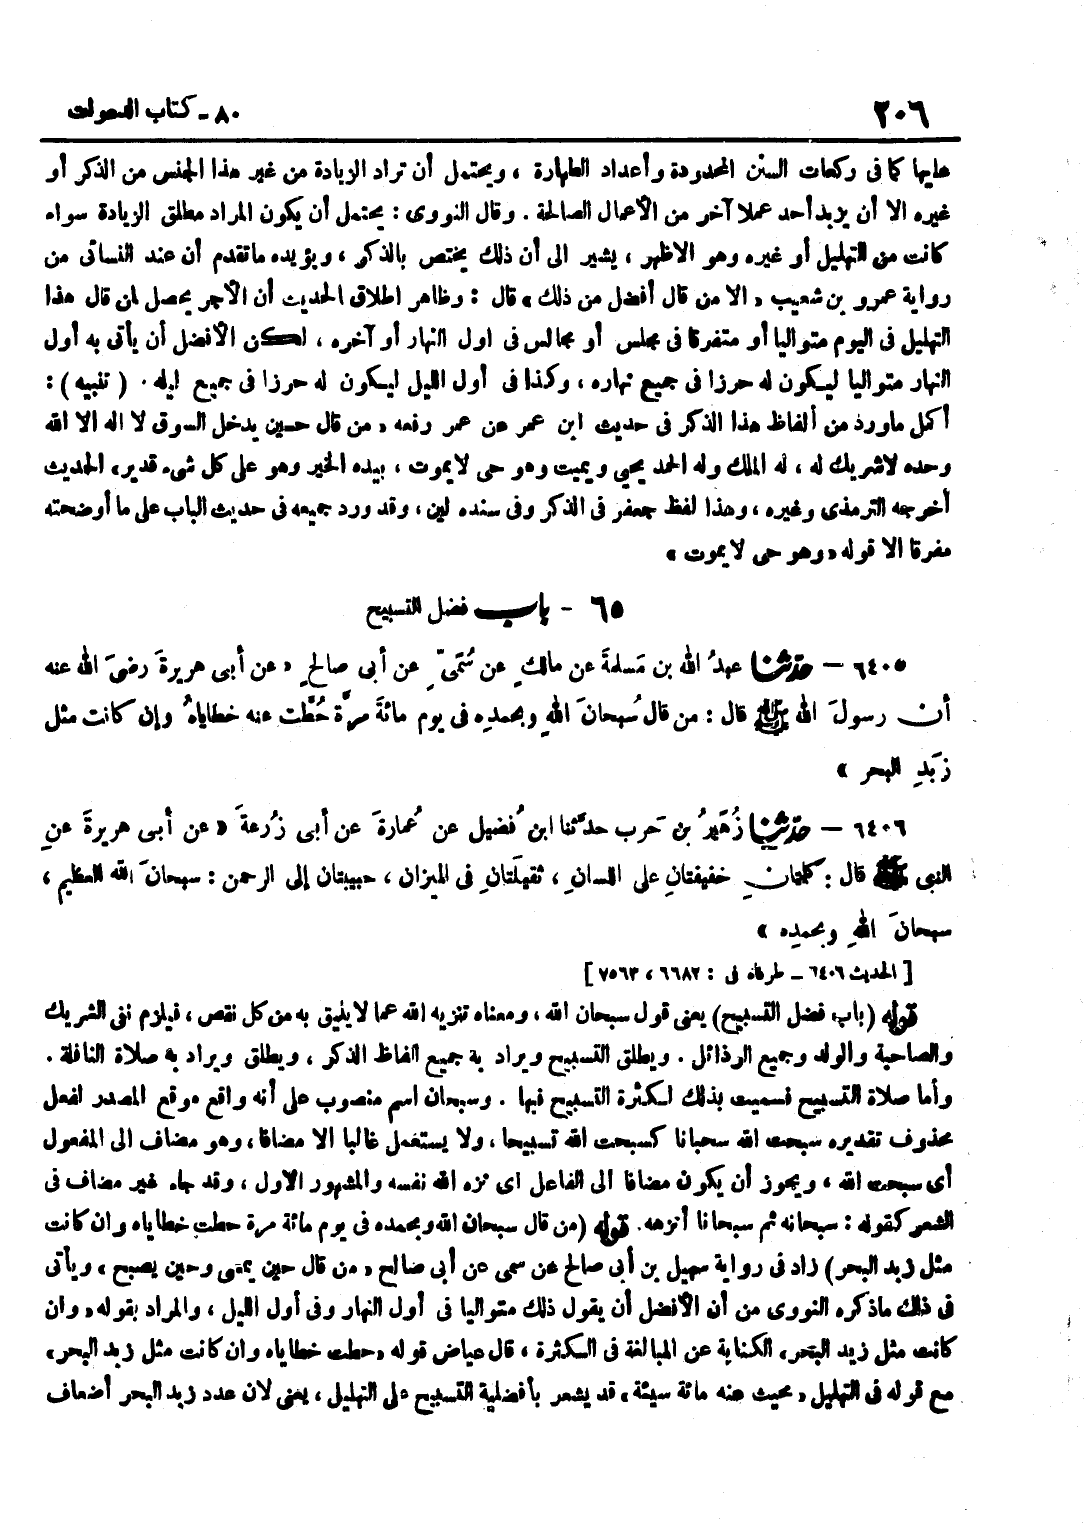 ٢٠٦
٨٠ - كتاب الدعوات
عليها كما فى ركعات السنن المحدودة وأعداد الطهارة ، ويحتمل أن تراد الزيادة من غير هذا الجنس من الذكر أو
غيره الا أن يزيد أحد عملا آخر من الأعمال الصالحة . وقال النووى : يحتمل أن يكون المراد مطلق الزيادة سواء
كانت من التهليل أو غيره وهو الاظهر ، يشير الى أن ذلك يختص بالذكر ، ويؤيده ماتقدم أن عند النسائى من
رواية عمرو بن شعيب « الا من قال أفضل من ذلك » قال : وظاهر اطلاق الحديث أن الأجر يحصل لمن قال هذا
التهليل فى اليوم متواليا أو متفرقا فى مجلس أو مجالس فى اول النهار أو آخره ، لكن الأفضل أن يأتى به أول
النهار متواليا ليكون له حرزا فى جميع نهاره ، وكذا فى أول الليل ليكون له حرزا فى جميع ليله . ( تنبيه ) :
أكمل ماورد من ألفاظ هذا الذكر فى حديث ابن عمر عن عمر رفعه « من قال حين يدخل السوق لا اله الا الله
وحده لاشريك له ، له الملك وله الحمد يحيي ويميت وهو حى لايموت ، بيده الخير وهو على كل شىء قدير » الحديث
أخرجه الترمذى وغيره ، وهذا لفظ جعفر فى الذكر وفى سنده لين ، وقد ورد جميعه فى حديث الباب على ما أوضحته
مفرقا الا قوله « وهو حى لا يموت »
٦٥ - باب فضل التسبيح
٦٤٠٥ - حدثنا عبدُ الله بن مَسلمةَ عن مالكٍ عن سُمَىّ عن أبى صالحٍ « عن أبى هريرةَ رضىَ الله عنه
أن رسولَ الله ﷺ قال : من قال سُبحانَ اللهِ وبحمدِه فى يوم مائةَ مرَّة حُطَّت عنه خطاياهُ وإن كانت مثل
زَبَدِ البحر »
٦٤٠٦ - حدثنا زُهَيرُ بن حَرب حدَّثنا ابن فُضيل عن عُمارةَ عن أبى زُرعةَ « عن أبى هريرةَ عنِ
النبى ﷺ قال : كلمتانِ خفيفتانِ على اللسانِ ، ثقيلَتانِ فى الميزان ، حبيبتان إلى الرحمن : سبحانَ الله العظيم ،
سبحانَ اللهِ وبحمدِه »
[ الحديث ٦٤٠٦ - طرفاه فى : ٦٦٨٢ ، ٧٥٦٣ ]
قوله (باب فضل التسبيح) يعنى قول سبحان الله ، ومعناه تنزيه الله عما لايليق به من كل نقص ، فيلزم نفى الشريك
والصاحبة والولد وجميع الرذائل . ويطلق التسبيح ويراد به جميع الفاظ الذكر ، ويطلق ويراد به صلاة النافلة .
وأما صلاة التسبيح فسميت بذلك لكثرة التسبيح فيها . وسبحان اسم منصوب على أنه واقع موقع المصدر لفعل
محذوف تقديره سبحت الله سبحانا كسبحت الله تسبيحا ، ولا يستعمل غالبا الا مضافا ، وهو مضاف الى المفعول
أى سبحت الله ، ويجوز أن يكون مضافا الى الفاعل اى نزه الله نفسه والمشهور الاول ، وقد جاء غير مضاف فى
الشعر كقوله : سبحانه ثم سبحانا أنزهه. قوله (من قال سبحان الله وبحمده فى يوم مائة مرة حطت خطاياه وان كانت
مثل زبد البحر) زاد فى رواية سهيل بن أبى صالح عن سمى عن أبى صالح « من قال حين يمسى وحين يصبح » ويأتى
فى ذلك ماذكره النووى من أن الأفضل أن يقول ذلك متواليا فى أول النهار وفى أول الليل ، والمراد بقوله « وان
كانت مثل زبد البحر » الكناية عن المبالغة فى الكثرة ، قال عياض قوله « حطت خطاياه وان كانت مثل زبد البحر »
مع قوله فى التهليل « محيت عنه مائة سيئة » قد يشعر بأفضلية التسبيح على التهليل ، يعنى لان عدد زبد البحر أضعاف